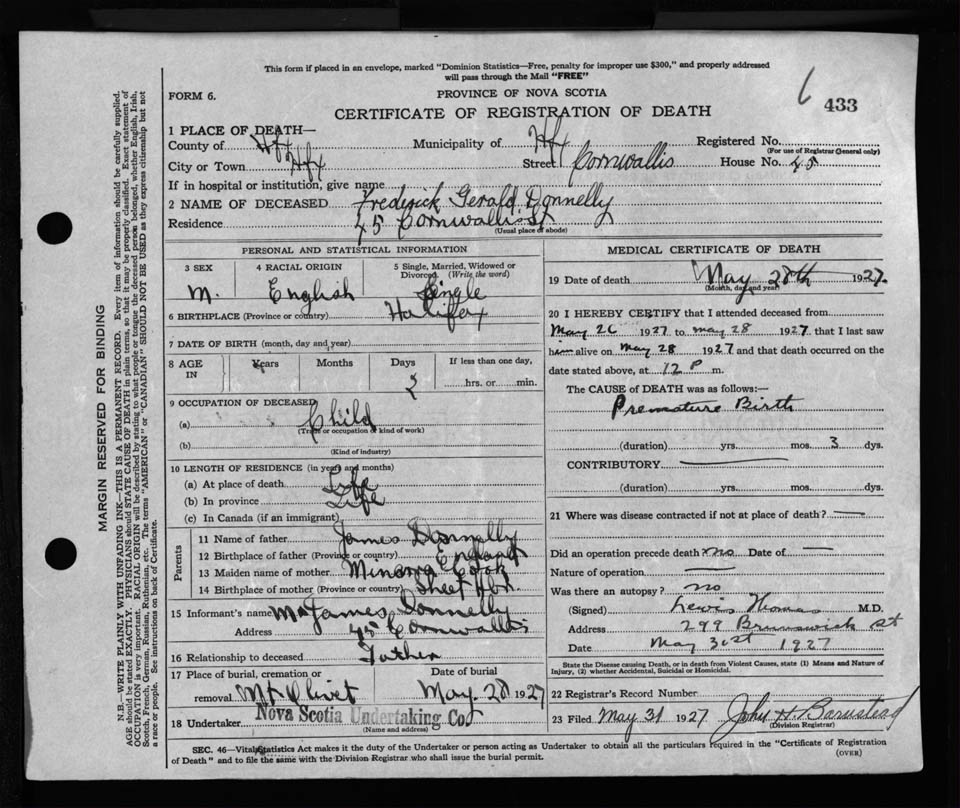 This form if placed in an envelope, marked "Dominion Statistics—Free, penalty for improper use $300," and properly addressed
will pass through the Mail "FREE"
FORM 6.
PROVINCE OF NOVA SCOTIA
6 433
CERTIFICATE OF REGISTRATION OF DEATH
1 PLACE OF DEATH—
County of Hfx Municipality of Hfx Registered No.
(For use of Registrar General only)
City or Town Hfx Street Cornwallis House No. 45
If in hospital or institution, give name
2 NAME OF DECEASED Frederick Gerald Donnelly
Residence 45 Cornwallis St
(Usual place of abode)
PERSONAL AND STATISTICAL INFORMATION
3 SEX 4 RACIAL ORIGIN 5 Single, Married, Widowed or Divorced (Write the word)
M. English Single
6 BIRTHPLACE (Province or country) Halifax
7 DATE OF BIRTH (month, day and year)
8 AGE IN Years Months Days If less than one day,
hrs. or min.
9 OCCUPATION OF DECEASED
(a) Child
(Trade or occupation or kind of work)
(b)
(Kind of industry)
10 LENGTH OF RESIDENCE (in years and months)
(a) At place of death Life
(b) In province Life
(c) In Canada (if an immigrant)
Parents
11 Name of father James Donnelly
12 Birthplace of father (Province or country) England
13 Maiden name of mother Cook
14 Birthplace of mother (Province or country) Sheet Hbr.
15 Informant's name Mr James Donnelly
Address 45 Cornwallis
16 Relationship to deceased Father
17 Place of burial, cremation or removal Mt Olivet Date of burial May 28 1927
18 Undertaker Nova Scotia Undertaking Co.
(Name and address)
MEDICAL CERTIFICATE OF DEATH
19 Date of death May 28th 1927.
(Month, day and year)
20 I HEREBY CERTIFY that I attended deceased from
May 26 1927 to May 28 1927 that I last saw
h alive on May 28 1927 and that death occurred on the
date stated above, at 12 P m.
The CAUSE of DEATH was as follows:—
Premature Birth
(duration) yrs. mos. 3 dys.
CONTRIBUTORY
(duration) yrs. mos. dys.
21 Where was disease contracted if not at place of death? —
Did an operation precede death? no Date of —
Nature of operation —
Was there an autopsy? no
(Signed) Lewis Thomas M.D.
Address 299 Brunswick St
Date May 31st 1927
State the Disease causing Death, or in death from Violent Causes, state (1) Means and Nature of
Injury, (2) whether Accidental, Suicidal or Homicidal.
22 Registrar's Record Number
23 Filed May 31 1927 John H. Barnstead
(Division Registrar)
SEC. 46—Vital Statistics Act makes it the duty of the Undertaker or person acting as Undertaker to obtain all the particulars required in the "Certificate of Registration
of Death" and to file the same with the Division Registrar who shall issue the burial permit.
(OVER)
MARGIN RESERVED FOR BINDING
N.B.—WRITE PLAINLY WITH UNFADING INK—THIS IS A PERMANENT RECORD. Every item of information should be carefully supplied.
AGE should be stated EXACTLY. PHYSICIANS should STATE CAUSE OF DEATH in plain terms, so that it may be properly classified. Exact statement of
OCCUPATION is very important. RACIAL ORIGIN will be described by stating to what people or tongue the deceased person belonged, whether English, Irish,
Scotch, French, German, Russian, Ruthenian, etc. The terms "AMERICAN" or "CANADIAN" SHOULD NOT BE USED as they express citizenship but not
a race or people. See instructions on back of Certificate.